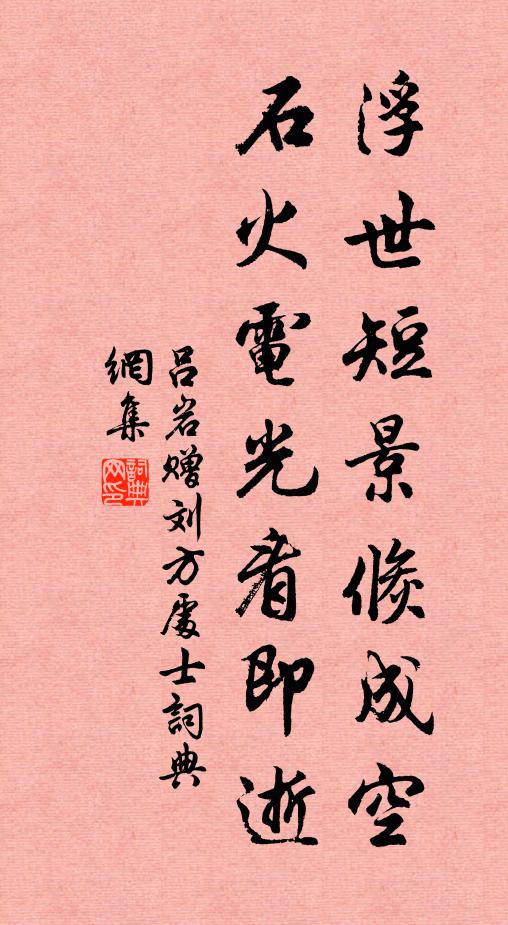 浮世短景倐成空
石火電光看即逝
吕岩赠刘方處士詞典
網集
詞典
网印